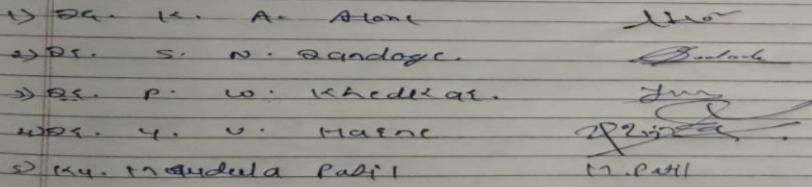 1) Dr. K. A. Alone
2) Dr. S. N. Dandage.
3) Dr. P. W. Khedekar.
4) Dr. Y. V. Harne
5) Ku. Mrudula Patil M. Patil